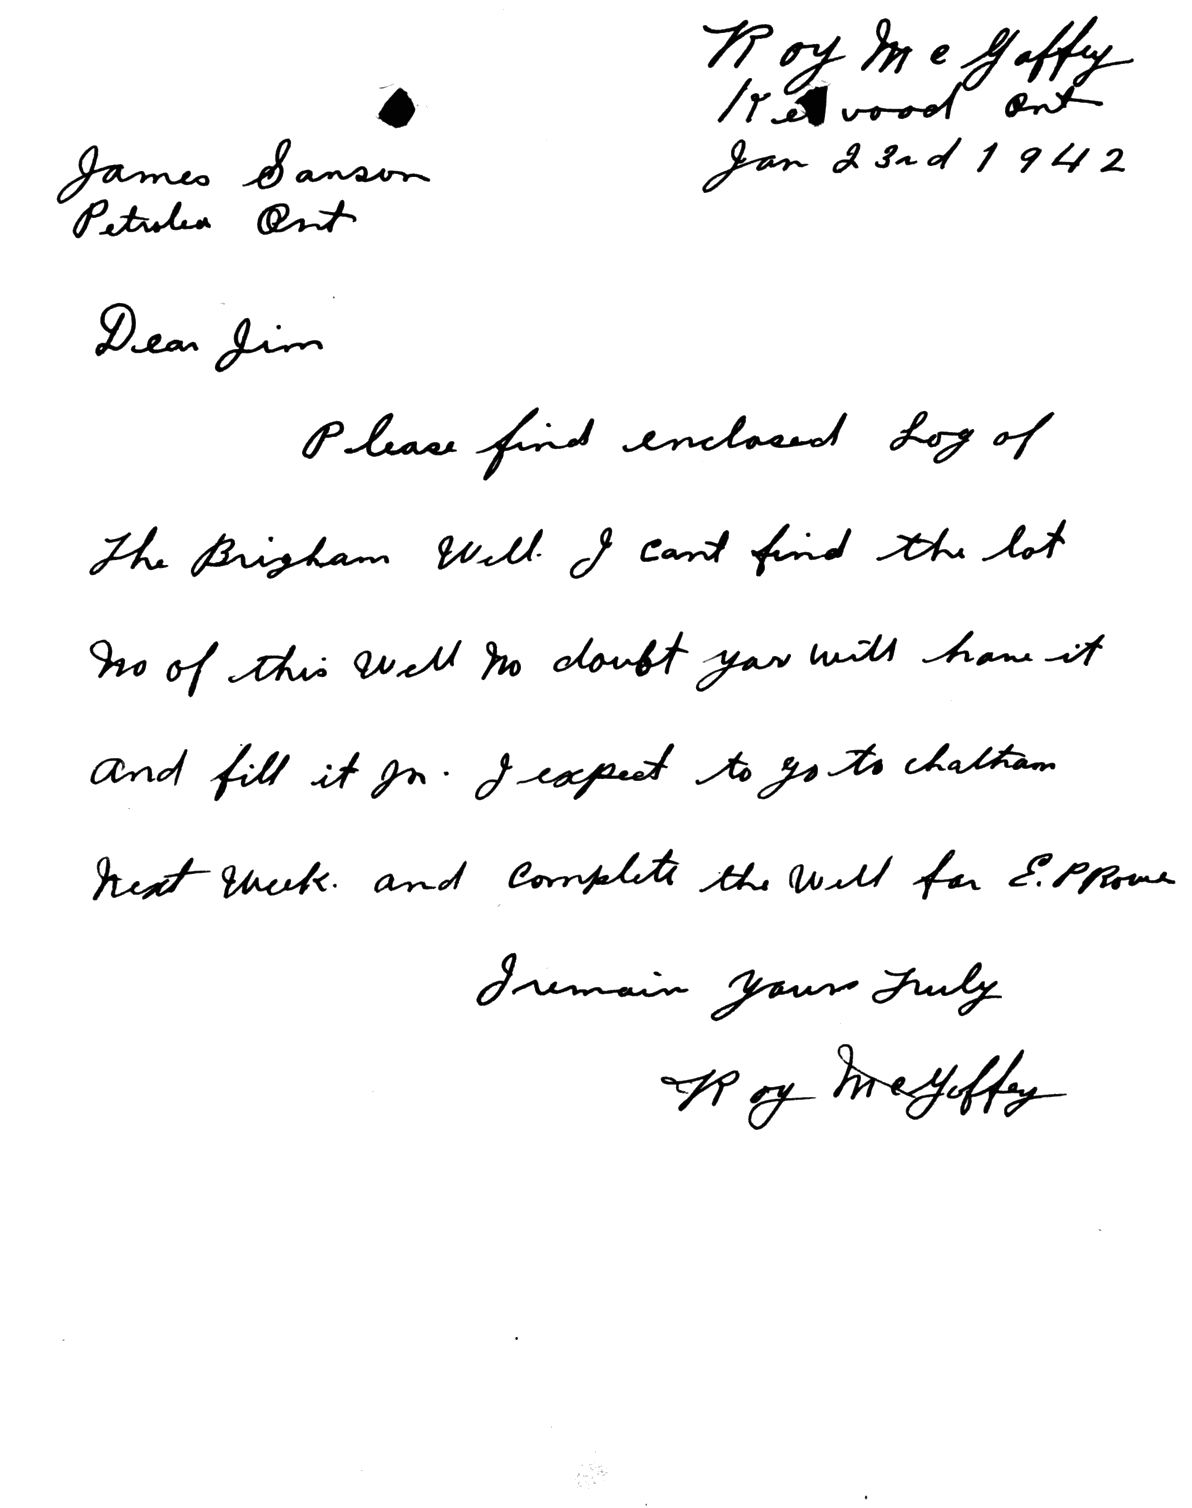 Roy McGaffey
Ont
Jan 23rd 1942
James Sanson
Petrolea Ont
Dear Jim
Please find enclosed Log of
The Brigham Well. I cant find the lot
No of this Well No doubt you will have it
and fill it In. I expect to go to chatham
Next Week. and Complete the Well for E. P Rowe
I remain Yours Truly
Roy McGaffey